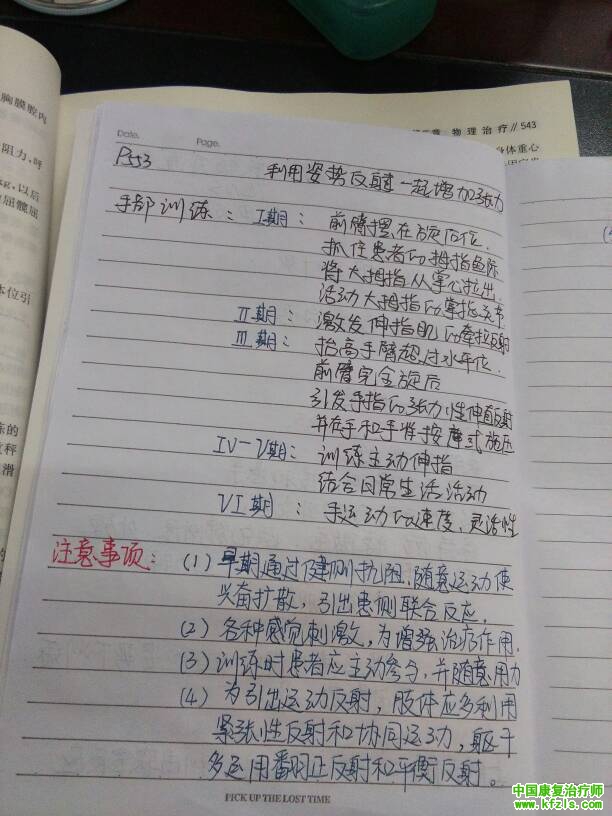 胸膜腔内
阻力,呼
kg,以后
体位引
滑
物理治疗//543
身体重心
Date. Page.
P553 利用姿势反射一起增加张力
手部训练: I期: 前臂摆在旋后位.
抓住患者的拇指鱼际
将大拇指从掌心拉出.
活动大拇指的掌指关节
II期: 激发伸指肌的牵拉反射
III期: 抬高手臂超过水平位.
前臂完全旋后
引发手指的张力性伸直反射
并在手和手背按摩式施压
IV-V期: 训练主动伸指
结合日常生活活动
VI期: 手运动的速度、灵活性
注意事项: (1) 早期通过健侧抗阻.随意运动使
兴奋扩散,引出患侧联合反应.
(2) 各种感觉刺激,为增强治疗作用.
(3) 训练时患者应主动参与,并随意用力
(4) 为引出运动反射,肢体应多利用
紧张性反射和协同运动,躯干
多运用翻正反射和平衡反射。
PICK UP THE LOST TIME
中国康复治疗师
www.kfzls.com